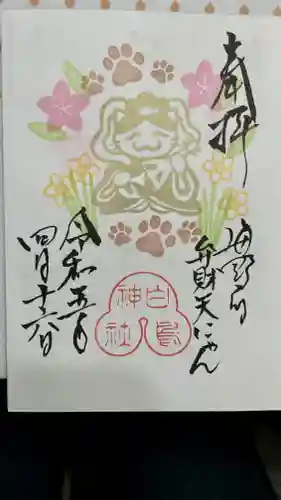 奉拝
海野
弁財天にゃん
白鳥神社
令和五年
四月十六日